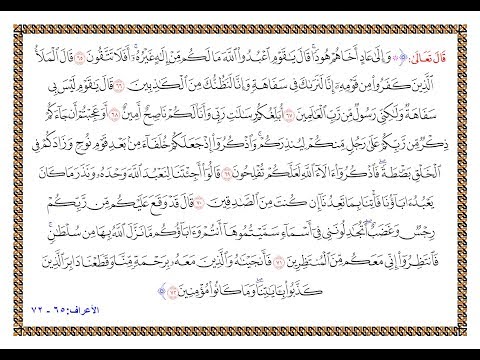 قَالَ تَعَالَى: ﴿ ۞ وَإِلَىٰ عَادٍ أَخَاهُمْ هُودًا ۗ قَالَ يَـٰقَوْمِ ٱعْبُدُوا۟ ٱللَّهَ مَا لَكُم مِّنْ إِلَـٰهٍ غَيْرُهُۥٓ ۚ أَفَلَا تَتَّقُونَ ﴿٦٥﴾ قَالَ ٱلْمَلَأُ
ٱلَّذِينَ كَفَرُوا۟ مِن قَوْمِهِۦٓ إِنَّا لَنَرَىٰكَ فِى سَفَاهَةٍ وَإِنَّا لَنَظُنُّكَ مِنَ ٱلْكَـٰذِبِينَ ﴿٦٦﴾ قَالَ يَـٰقَوْمِ لَيْسَ بِى
سَفَاهَةٌ وَلَـٰكِنِّى رَسُولٌ مِّن رَّبِّ ٱلْعَـٰلَمِينَ ﴿٦٧﴾ أُبَلِّغُكُمْ رِسَـٰلَـٰتِ رَبِّى وَأَنَا۠ لَكُمْ نَاصِحٌ أَمِينٌ ﴿٦٨﴾ أَوَعَجِبْتُمْ أَن جَآءَكُمْ
ذِكْرٌ مِّن رَّبِّكُمْ عَلَىٰ رَجُلٍ مِّنكُمْ لِيُنذِرَكُمْ ۚ وَٱذْكُرُوٓا۟ إِذْ جَعَلَكُمْ خُلَفَآءَ مِنۢ بَعْدِ قَوْمِ نُوحٍ وَزَادَكُمْ فِى
ٱلْخَلْقِ بَصْۜطَةً ۖ فَٱذْكُرُوٓا۟ ءَالَآءَ ٱللَّهِ لَعَلَّكُمْ تُفْلِحُونَ ﴿٦٩﴾ قَالُوٓا۟ أَجِئْتَنَا لِنَعْبُدَ ٱللَّهَ وَحْدَهُۥ وَنَذَرَ مَا كَانَ
يَعْبُدُ ءَابَآؤُنَا ۖ فَأْتِنَا بِمَا تَعِدُنَآ إِن كُنتَ مِنَ ٱلصَّـٰدِقِينَ ﴿٧٠﴾ قَالَ قَدْ وَقَعَ عَلَيْكُم مِّن رَّبِّكُمْ
رِجْسٌ وَغَضَبٌ ۖ أَتُجَـٰدِلُونَنِى فِىٓ أَسْمَآءٍ سَمَّيْتُمُوهَآ أَنتُمْ وَءَابَآؤُكُم مَّا نَزَّلَ ٱللَّهُ بِهَا مِن سُلْطَـٰنٍ ۚ
فَٱنتَظِرُوٓا۟ إِنِّى مَعَكُم مِّنَ ٱلْمُنتَظِرِينَ ﴿٧١﴾ فَأَنجَيْنَـٰهُ وَٱلَّذِينَ مَعَهُۥ بِرَحْمَةٍ مِّنَّا وَقَطَعْنَا دَابِرَ ٱلَّذِينَ
كَذَّبُوا۟ بِـَٔايَـٰتِنَا ۖ وَمَا كَانُوا۟ مُؤْمِنِينَ ﴿٧٢﴾ ﴾
الأعراف: ٦٥ - ٧٢